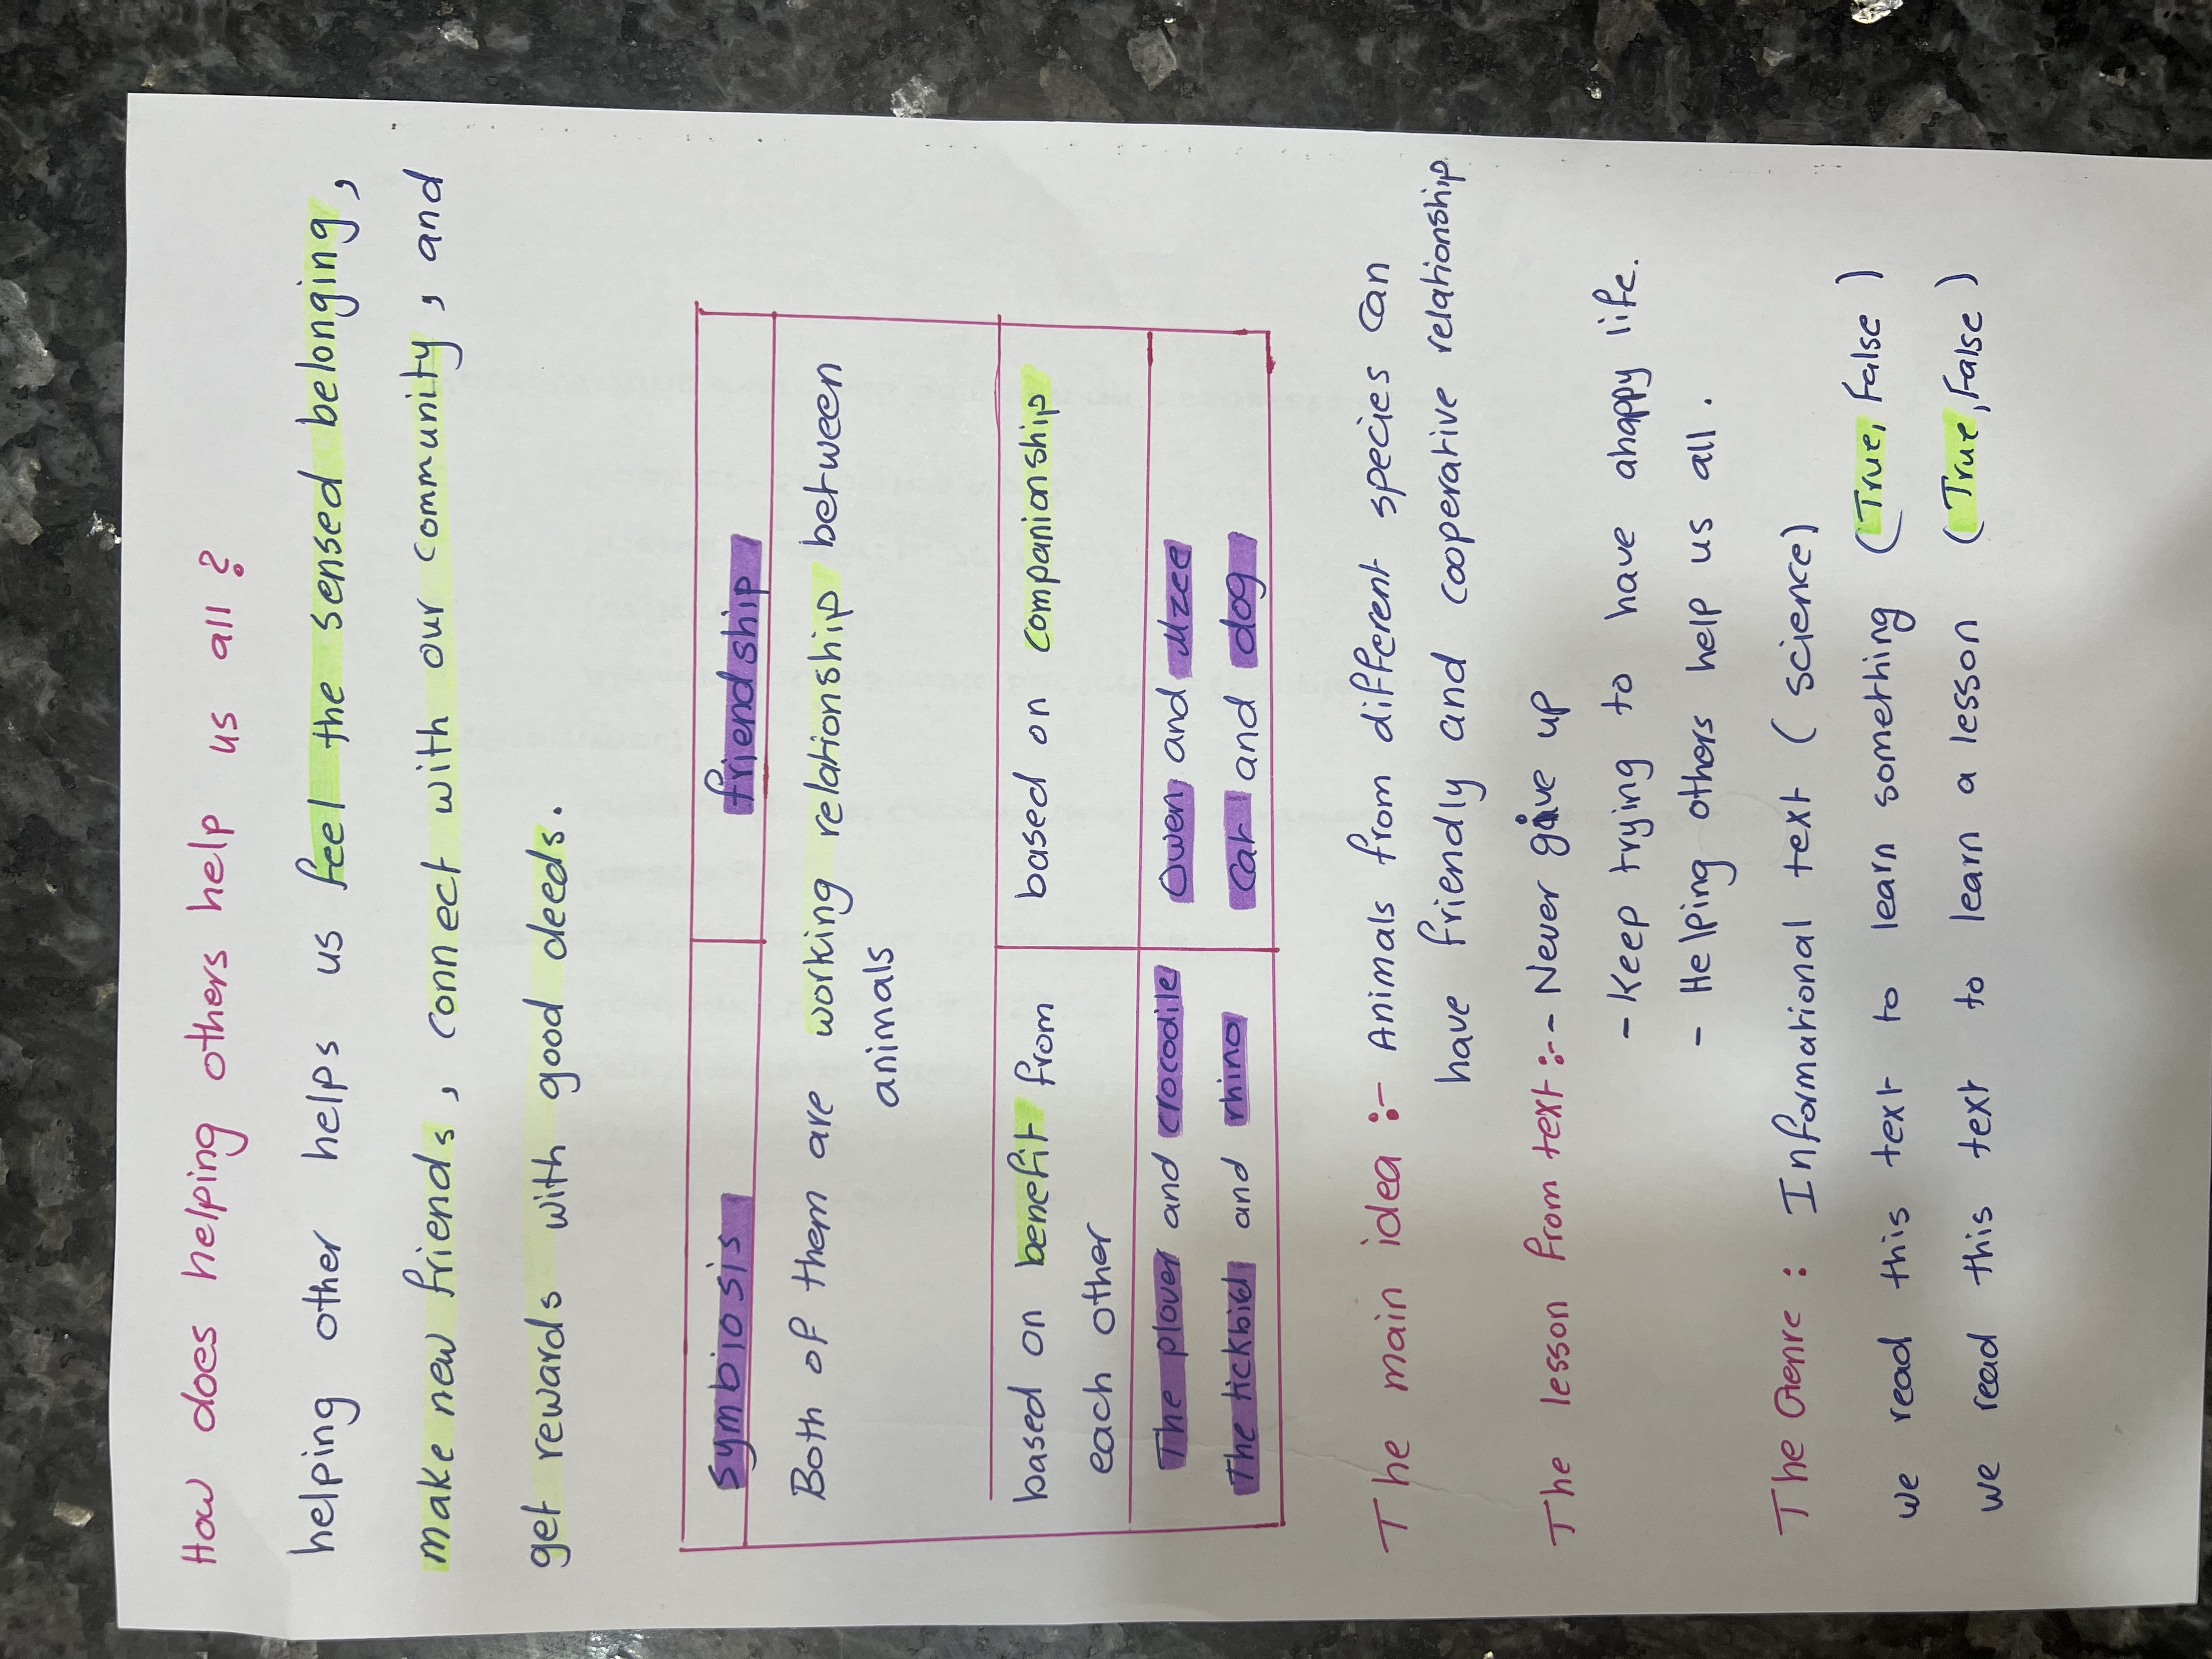 How does helping others help us all?
helping other helps us feel the sensed belonging,
make new friends, connect with our community, and
get rewards with good deeds.
symbiosis friendship
Both of them are working relationship between
animals
based on benefit from
each other
based on companionship
The plover and crocodile
The tickbird and rhino
Owen and Mzee
Cat and dog
The main idea :- Animals from different species can
have friendly and cooperative relationship
The lesson from text :- - Never give up
- Keep trying to have ahappy life.
- Helping others help us all.
The Genre : Informational text (science)
we read this text to learn something (True, False)
we read this text to learn a lesson (True, False)